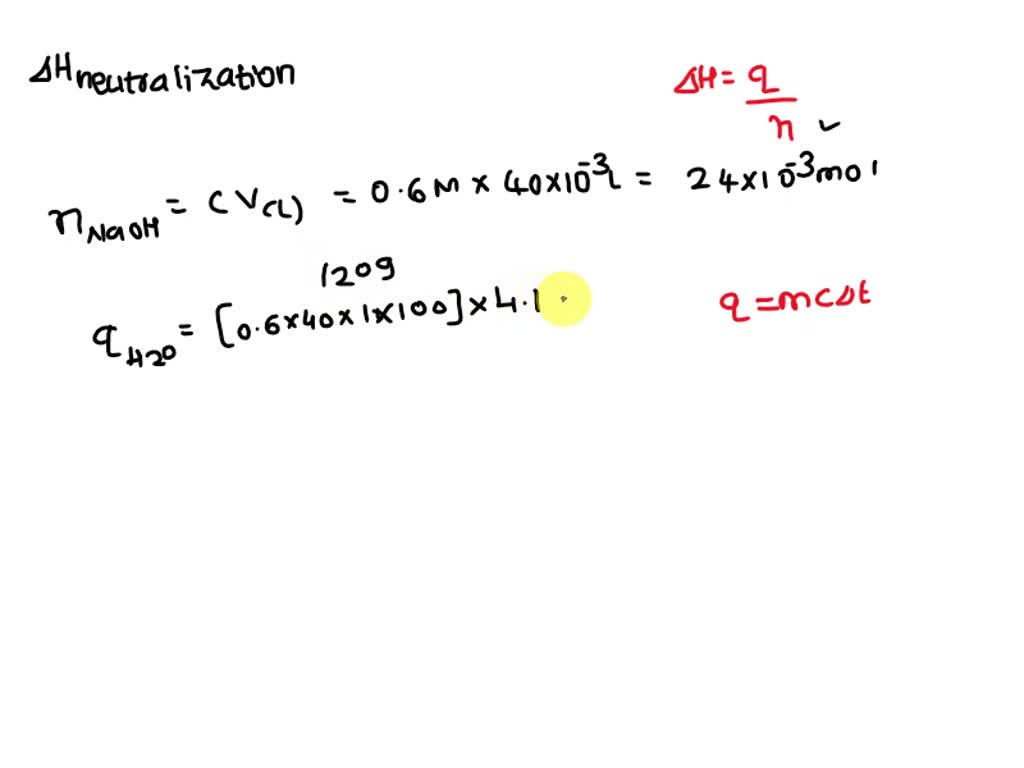 ΔH neutralization
ΔH = q/n ✓
n NaOH = C V(L) = 0.6M × 40×10⁻³L = 24×10⁻³mol
120g
q H2O = [0.6×40×1×100]×4.1
q = mcΔt